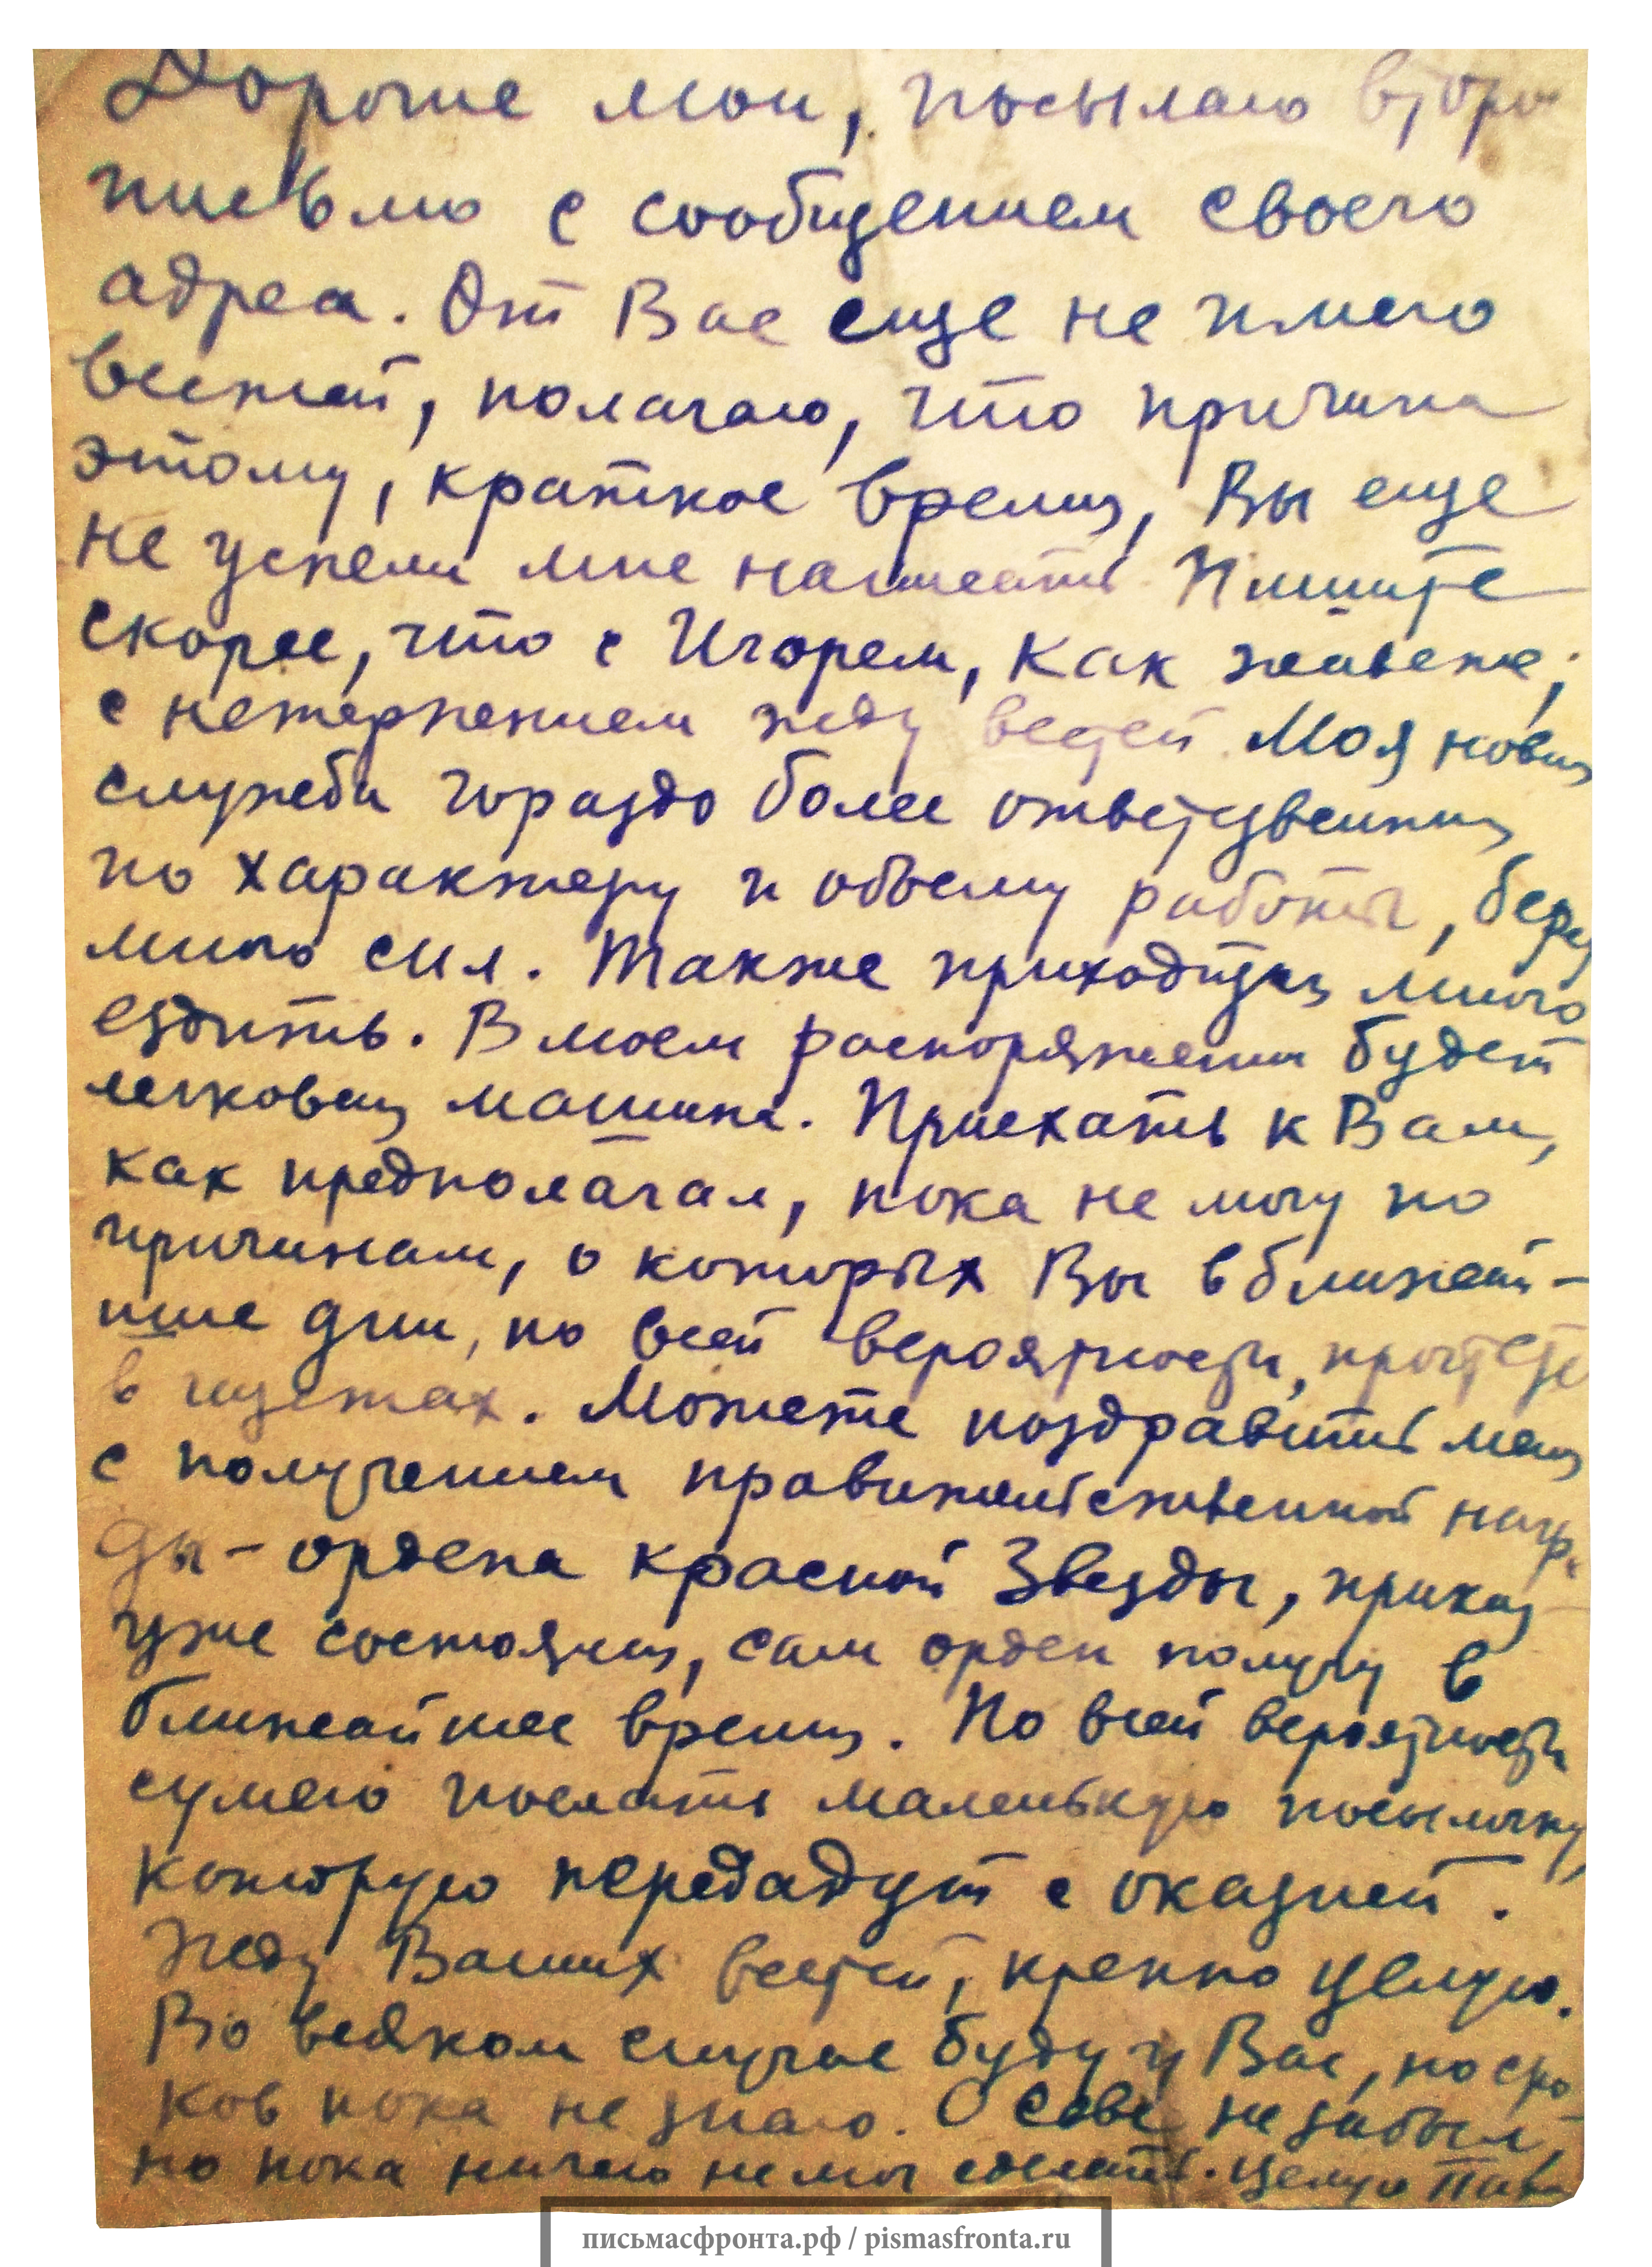 Дорогие мои, посылаю второе
письмо с сообщением своего
адреса. От Вас еще не имею
вестей, полагаю, что причина
этому, краткое время, Вы еще
не успели мне написать. Пишите
скорее, что с Игорем, как живете;
с нетерпением жду вестей. Моя новая
служба гораздо более ответственная
по характеру и объему работы, берет
много сил. Также приходится много
ездить. В моем распоряжении будет
легковая машина. Приехать к Вам,
как предполагал, пока не могу по
причинам, о которых Вы в ближай-
шие дни, по всей вероятности, прочтете
в газетах. Можете поздравить меня
с получением правительственной награ-
ды - ордена красной Звезды, приказ
уже состоялся, сам орден получу в
ближайшее время. По всей вероятности
сумею послать маленькую посылочку,
которую передадут с оказией.
Жду Ваших вестей, крепко целую.
Во всяком случае буду у Вас, но сро-
ков пока не знаю. О Севе не забыл,
но пока ничего не мог сделать. Целую Павел
письмасфронта.рф / pismasfronta.ru